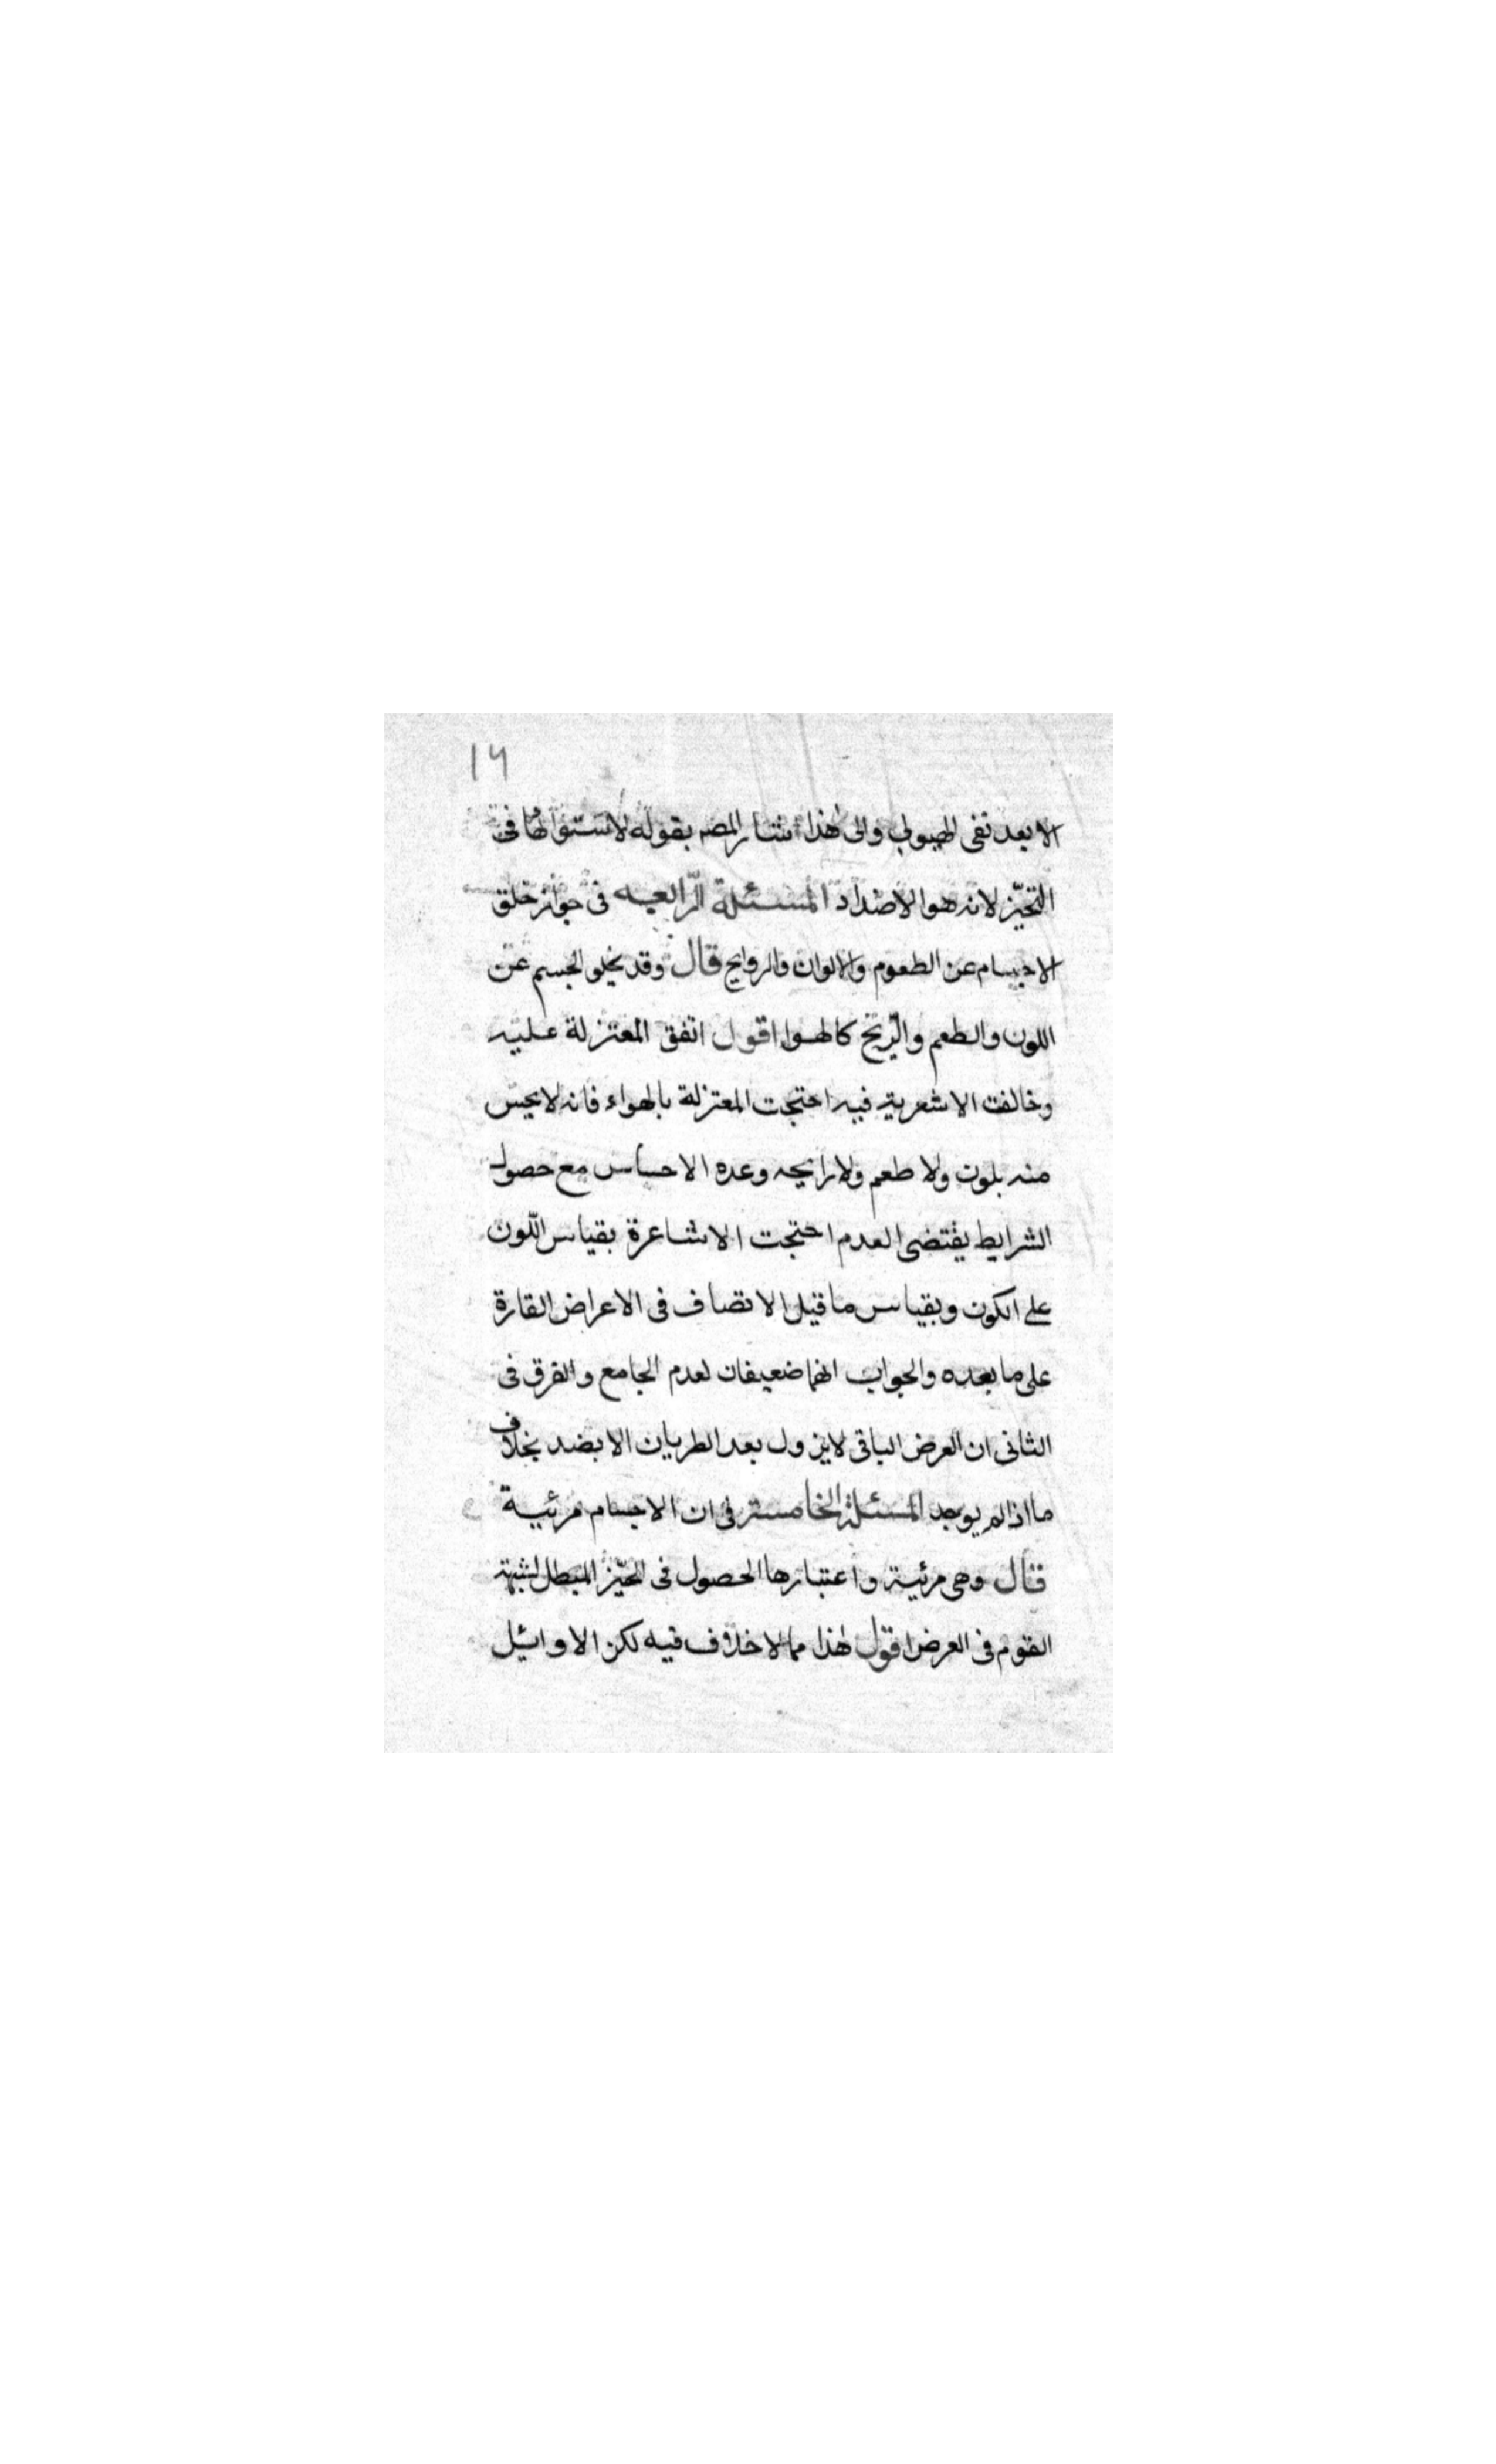 ١٦
الا بعد نفى الهيولى والى هذا اشار المصه بقوله لاستوائها فى
التحيّز لانه هوا لاضداد المسئلة الرّابعه فى جواز خلق
الاجسام عن الطعوم والالوان والروايح قال وقد يخلو الجسم عن
اللون والطعم والرّيح كالهوا اقول اتفق المعتزلة عليه
وخالفت الاشعرية فيه احتجت المعتزلة بالهواء فانه لا يحس
منه بلون ولا طعم ولا رايحه وعده الاحساس مع حصول
الشرايط يقتضى العدم احتجت الاشاعرة بقياس اللّون
على الكون وبقياس ما قيل الاتصاف فى الاعراض القارة
على ما بعده والجواب انهما ضعيفان لعدم الجامع والفرق فى
الثانى ان العرض الباقى لا يزول بعد الطريان الا بضد بخلاف
ما اذا لم يوجد المسئلة الخامسة فى ان الاجسام مرئية
قال وهى مرئية واعتبارها الحصول فى الحيّز المبطل لشبهة
القوم فى العرض اقول هذا مما لا خلاف فيه لكن الاوائيل